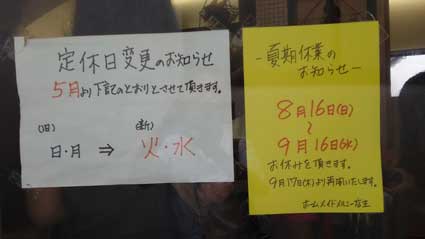 定休日変更のお知らせ
5月より下記のとおりとさせて頂きます。
(旧) (新)
日・月 ⇒ 火・水
-夏期休業の
お知らせ-
8月16日(日)
~
9月16日(水)
お休みを頂きます。
9月17日(木)より再開いたします。
ホームメイドメルシー店主